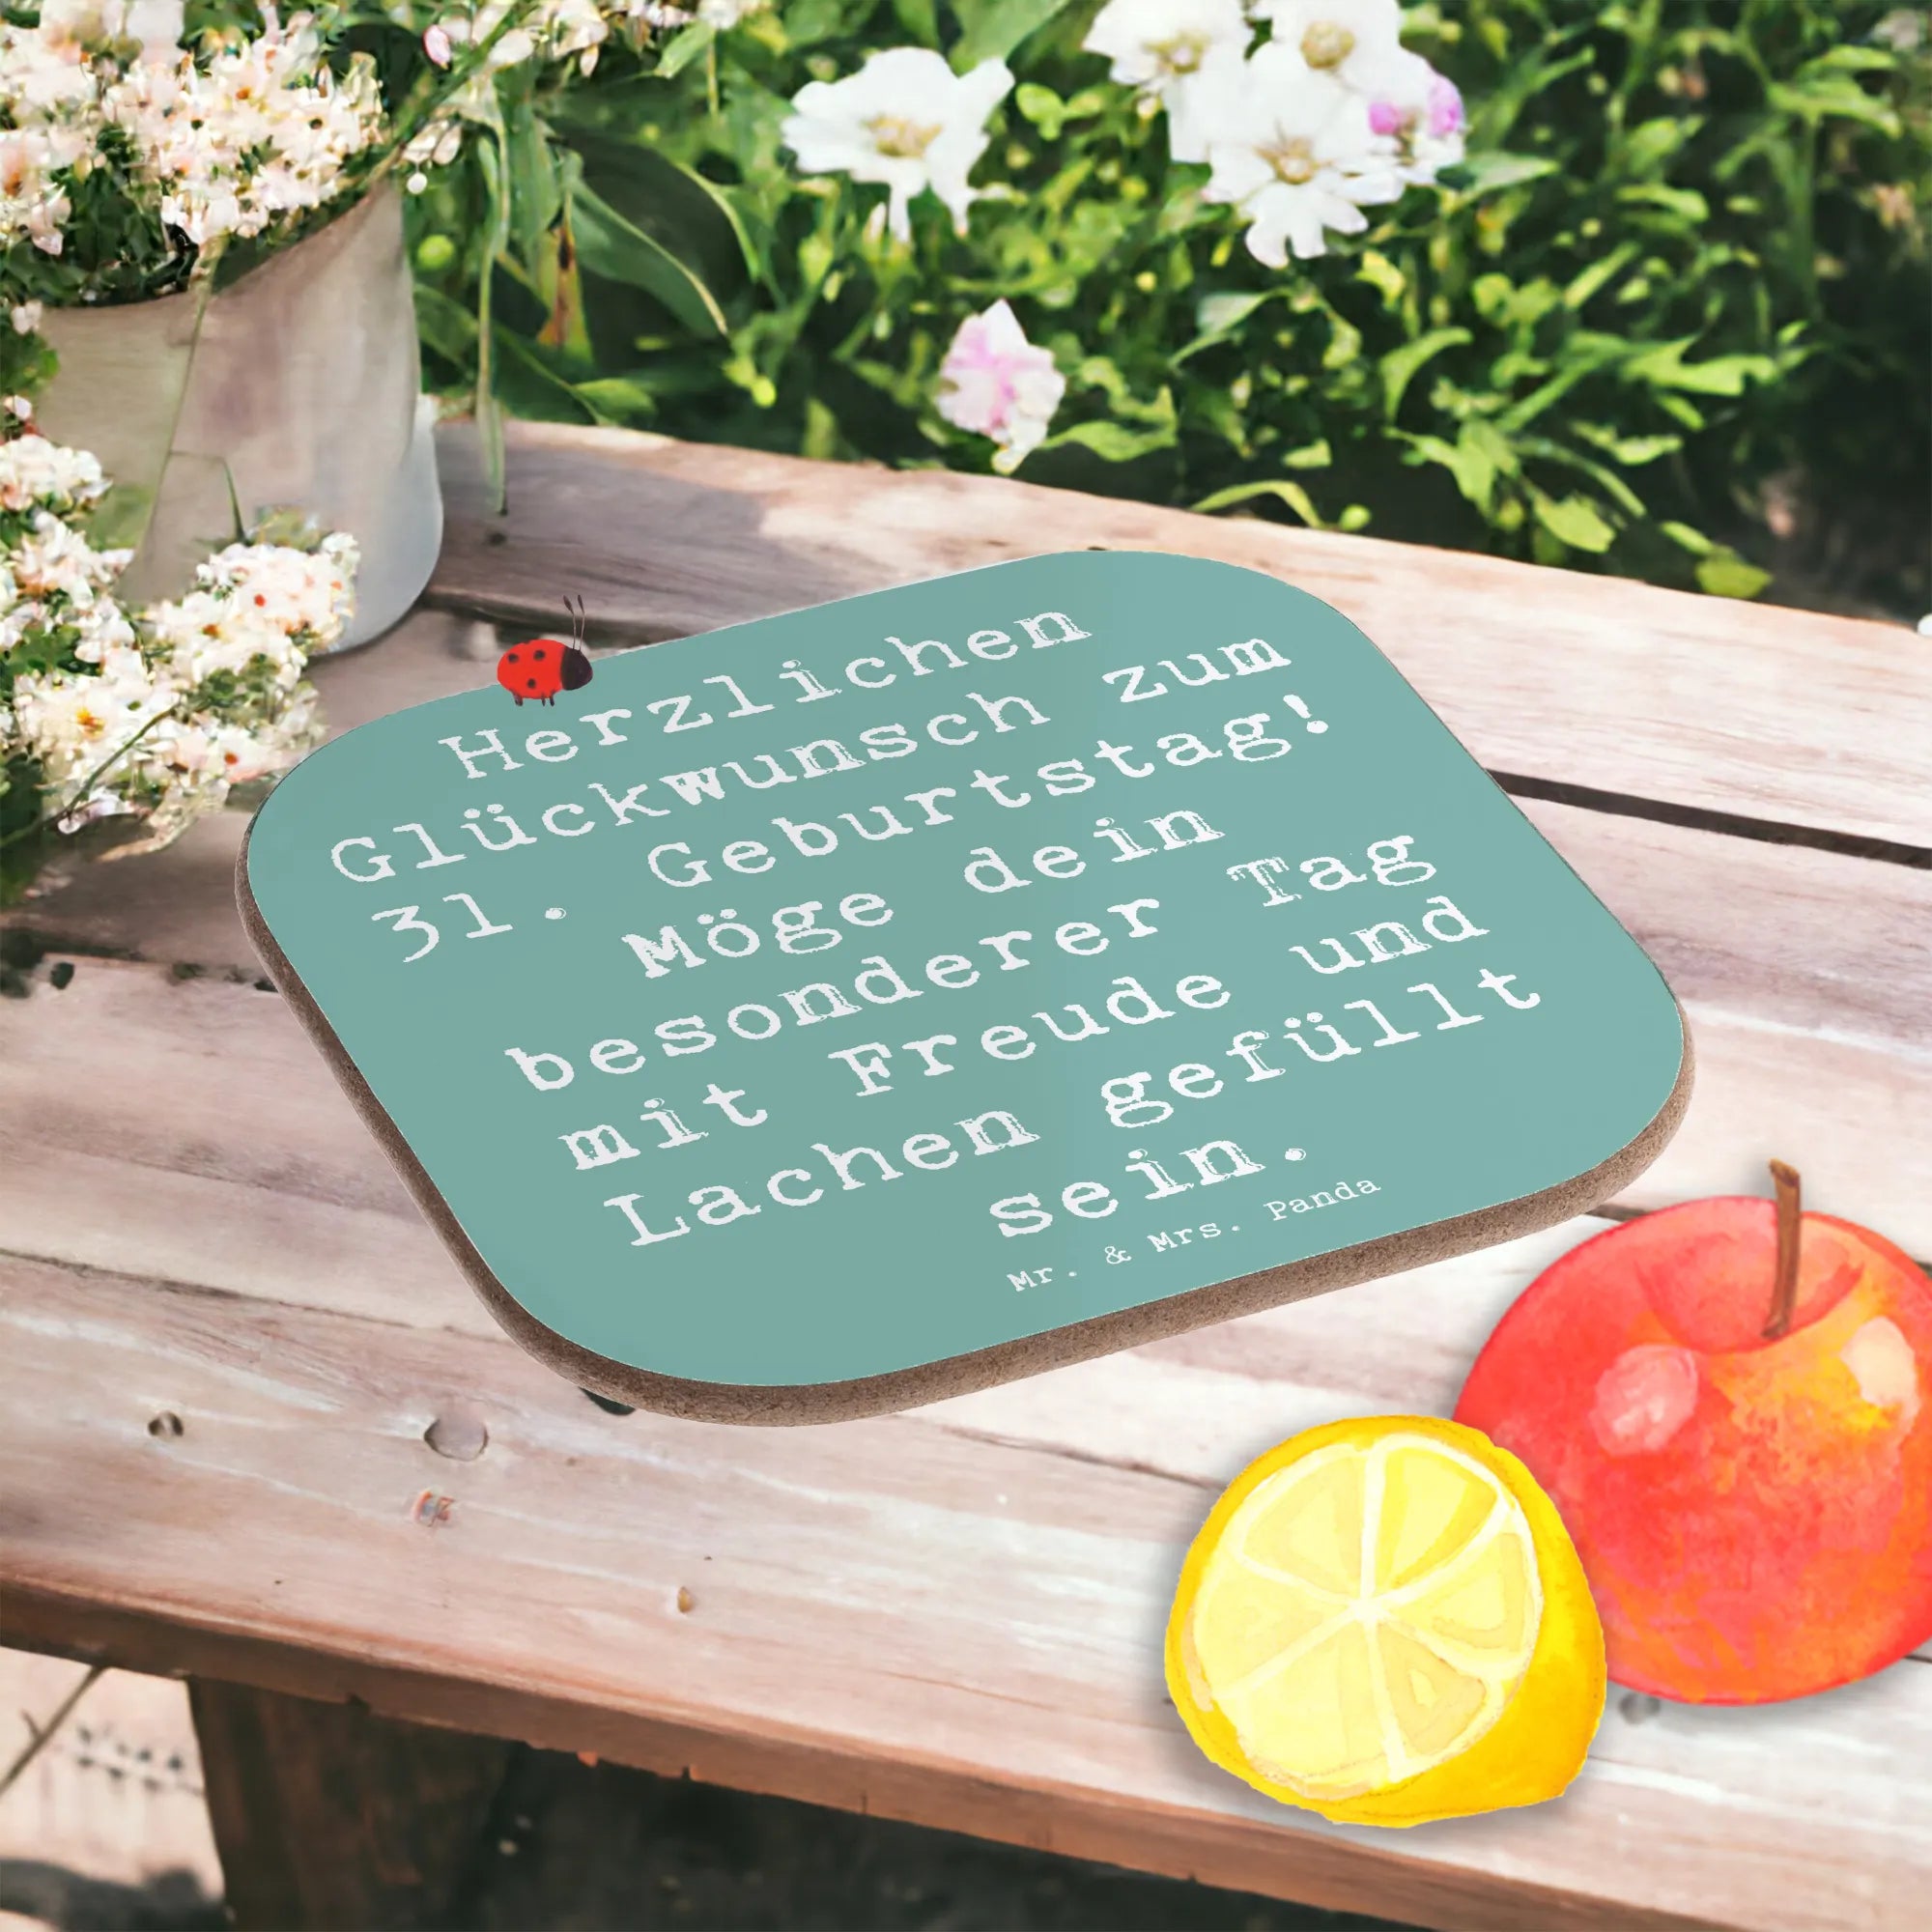 Herzlichen
Glückwunsch zum
31. Geburtstag!
Möge dein
besonderer Tag
mit Freude und
Lachen gefüllt
sein.
Mr. & Mrs. Panda